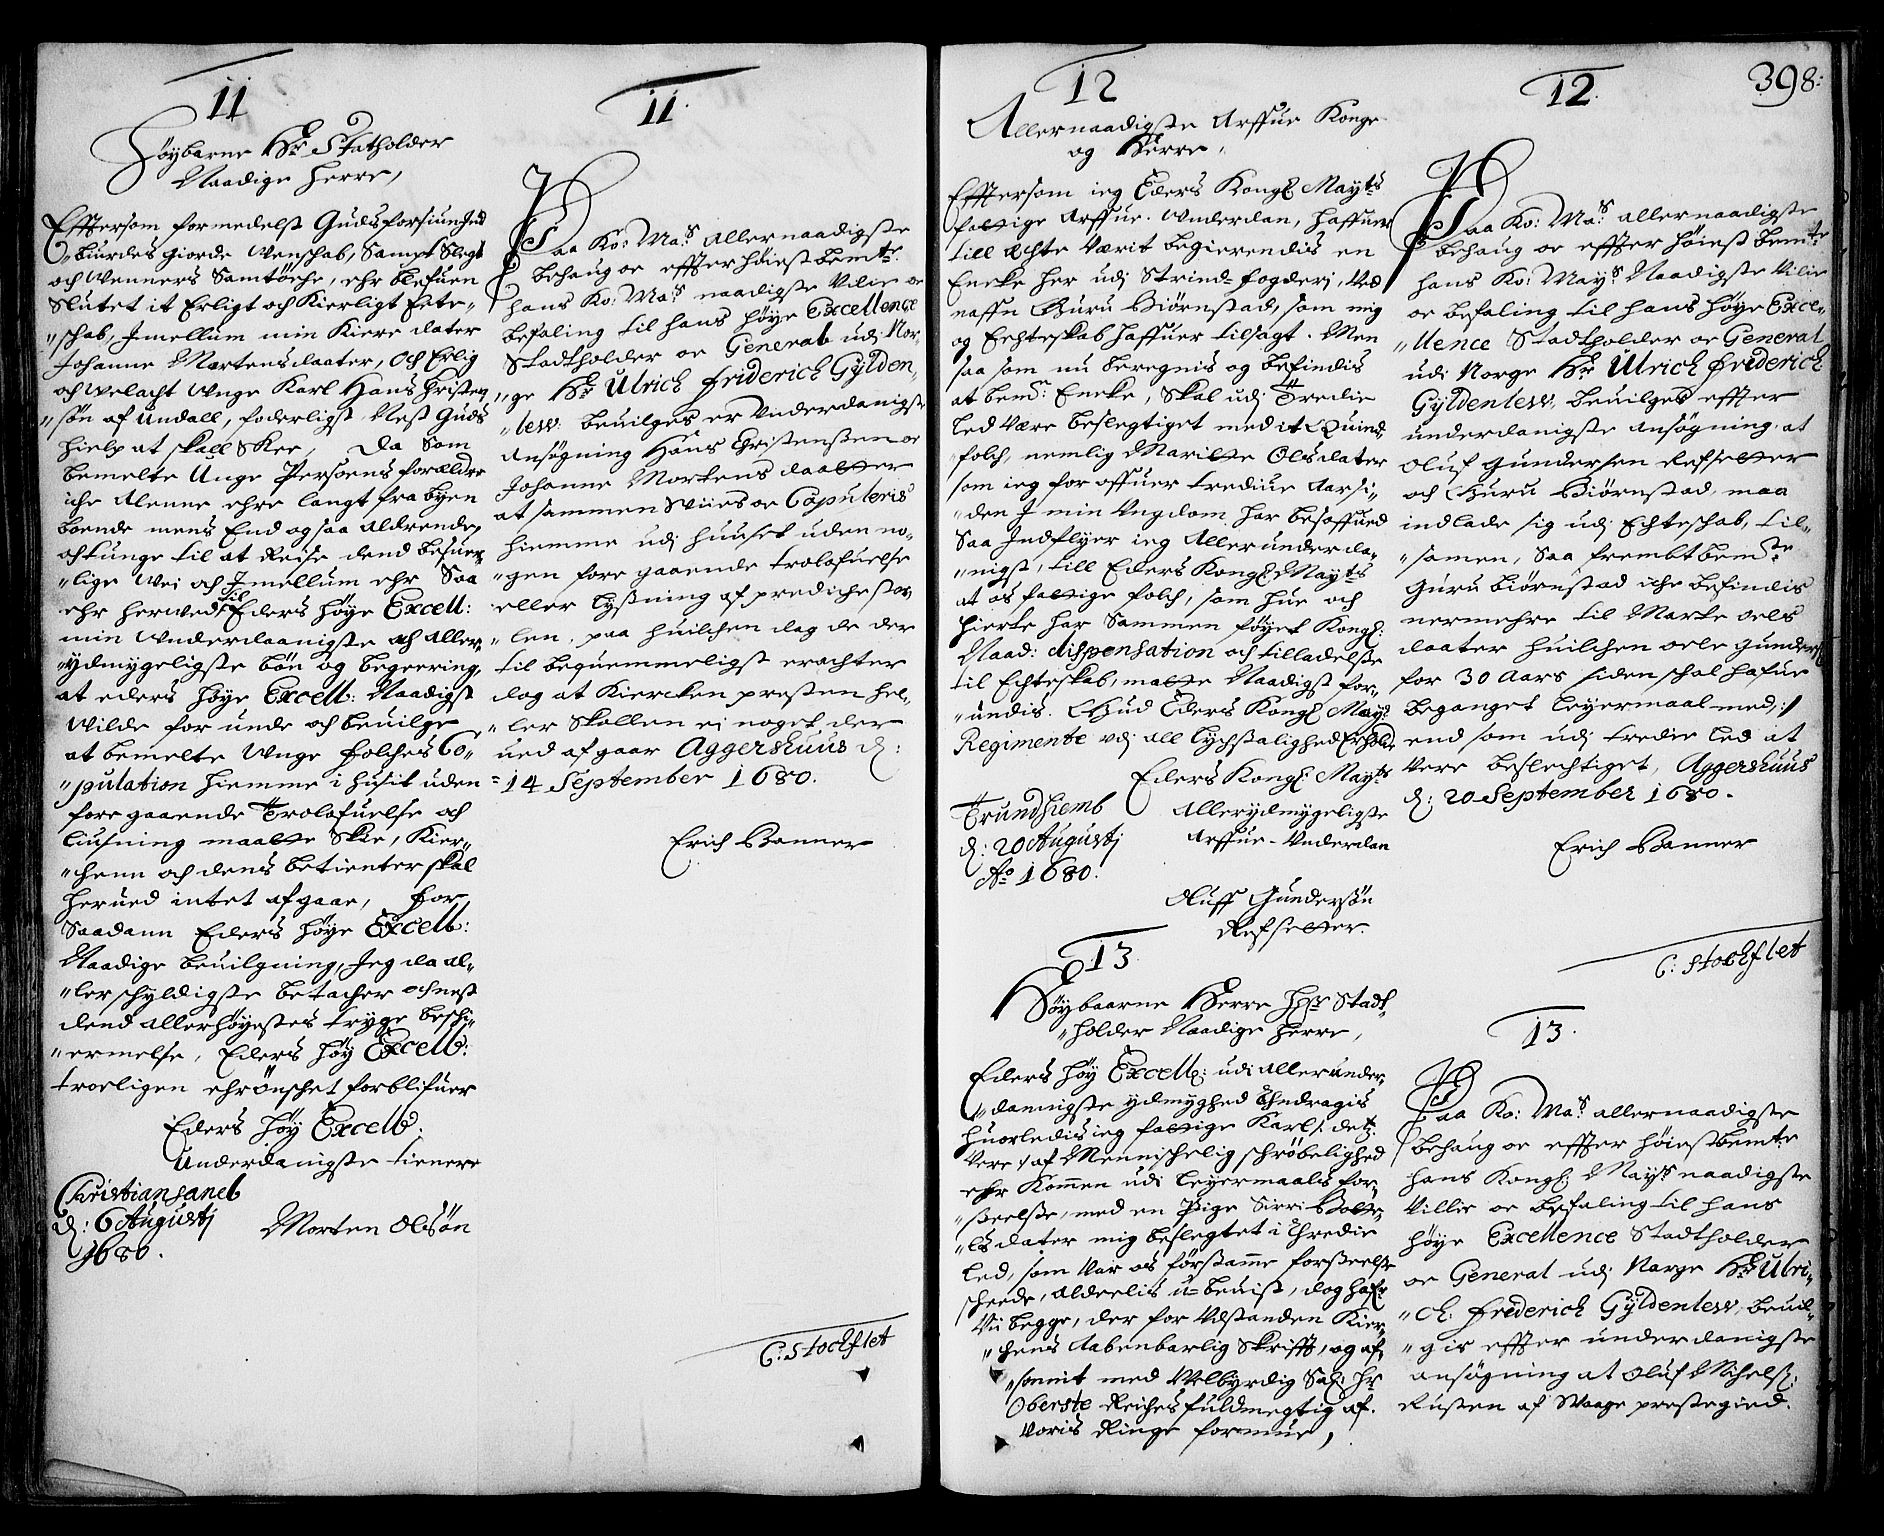 11
Høybarne Hr Statholder
Naadige herre,
Efftersom formedelst Guds forsiunhed
burdes giorde Venschab, Sampt Slegt
och Venners Samtöche, ehr blefuen
Slutet it Erligt och Kierligt Ecte-
schab, Jmellum min Kiere dater
Johanne Martensdaater, Och Erlig
och velacht Unge Karl Hans Christen
søn af Undall, foderligst Nest Guds
hielp at skall Skee, Da Som
bemelte Unge Persoens forældre
iche Alenne ehre langt fra byen
boende mens End ogsaa Aldrende,
och tunge til at Reise dend besuer-
lige Vei och Jmellum ehr Saa
ehr herved til Eders høye Excell:
min Underdaanigste och Aller-
ydmygeligste bøn og begeering,
at eders høye Excell: Naadigst
Wilde for unde och beuilge
at bemelte Unge folches Co-
pulation hiemme i husit uden
fore gaaende Trolofuelse och
liusning maatte Skee, Kier-
chenn och dens betienter skal
herued intet afgaar, for
Saadann Eders høye Excell:
Naadige beuilgning, Jeg da al-
lerschyldigste betacher och nest
dend Allerhøyestes tryge beschi-
ermelse, Eders høy Excell:
troeligen ehr önschet forblifuer
Eders høy Excell:
Underdanigste tienere
Christiansand
d: 6 Augustj
1680.
Morten Olsön
11.
Paa Ko: Mas. Allernaadigste
behaug oc effter høiestbemte
hans Ko: Mas naadigste Vilie oc
befaling til hans høye Excellence
Stadtholder oc General udj Nor-
ge Hr Ulrich friderich Gylden-
lew: beuilges er Underdanigst
Ansøgning Hans Christensen oc
Johanne Mortens daatter
at sammen Vies oc Coputeris
hiemme udj huuset uden no-
gen fore gaaende trolofuelse
eller lysning af predichesto-
len, paa huilchen dag de der
til bequemmeligst erachter
dog at Kiercken presten hel-
ler Skollen ei noget der
ued afgaar Aggershuus d:
14 September 1680.
Erich Banner
C: Stochflet
12
Allernaadigste Arffue Konge
og Herre,
Efftersom ieg Eders Kongl Mayts
fattige Arffue Underdan, haffuer
till Echte Værit begierendis en
Encke her udj Strind-fogderj, Ved
naffn Guru Biørnstad, som mig
og Echteskab haffuer tilsagt. Men
saa som nu beregnis og befindis
at bemte: Encke, Skal udj Tredie
led Være beslegtiget med it Quind-
folch, nemlig Maritte Olsdater
som ieg for offuer trediue Aar si-
den J min Ungdom har besoffued
Saa Jndflyer ieg Allerunderda-
nigst, till Eders Kongl Mayts
at os fattige folch, som hue och
hierte har Sammen føyet Kongl:
Naad: dispensation och tilladelse
til Echteskab, matte Naadigst for-
undis. Gud Eders Kongl May:
Regimente vdj all lychsalighed Erhold
Eders Kongl: Mayts
Allerydmygeligste
Arffue-Underdan
Trundhiemb
d: 20 Augustj
Ao 1680.
Oluff Gundersøn
Refsetter.
13
Høybaarne Herre Her Stadt-
holder Naadige herre,
Eders høy Excell: udi allerunder-
dannigste ydmyghed Andragis
huorledis ieg fattige Karl /: det
Vere :/ af Mennischelig schrøbelighed
ehr Kommen udi leyermaals for-
seelse, med en Pige Sirri
dater mig beslegtet i Thredie
led, som Var os førstamme forseelse
scheede, Alderlis u-beuist, dog hafr
Vii begge, der for Udstanden Kier-
chens Aabenbarlig Skrifft, og af-
sonnit med Velbyrdig Sal: Hr
Oberste Reiches fuldmegtig af
Voris Ringe formue,
12.
398:
Paa Ko: Mas. allernaadigste
behaug oc effter høiest bemte
hans Ko: Mays. Naadigste Vilie
oc befaling til hans høye Exce-
llence Stadtholder oc General
udi Norge Hr Ulrich friderich
Gyldenlew, beuilges effter
underdanigste ansøgning at
Oluf Gundersen Refsetter
och Guru Biørnstad, maa
indlade sig udj Echteschab, til-
samen, Saa frembt bemte
Guru Biørnstad iche befindis
nermehre til Marte oels
daater huilchen oele Gunders:
for 30 Aars siden schal hafue
beganget leyermaal med, :/
end som udj tredie led at
Vere beslechtiget, Aggershuus
d: 20 September 1680.
Erich Banner
C: Stochflet
13.
Paa Ko: Mas. allernaadigste
behaug oc effter høiestbemte
hans Kongl: Mayts naadigste
Villie oc befaling til hans
høye Excellence Stadtholder
oc General udj Norge Hr Ulri-
ch friderich Gyldenlew, beuil-
gis effter underdanigste
ansøgning at Oluf Michels:
Rusten af Waage prestegield